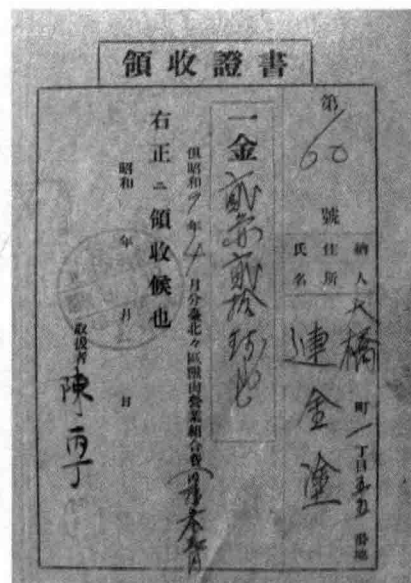 領收證書
第160號
納人住所氏名
大橋町一丁目 番地
連金塗
一金貳 貳拾 也
但昭和9年4月分臺北 區獸肉營業組合費
右正ニ領收候也
昭和 年 月 日
取扱者 陳丙丁